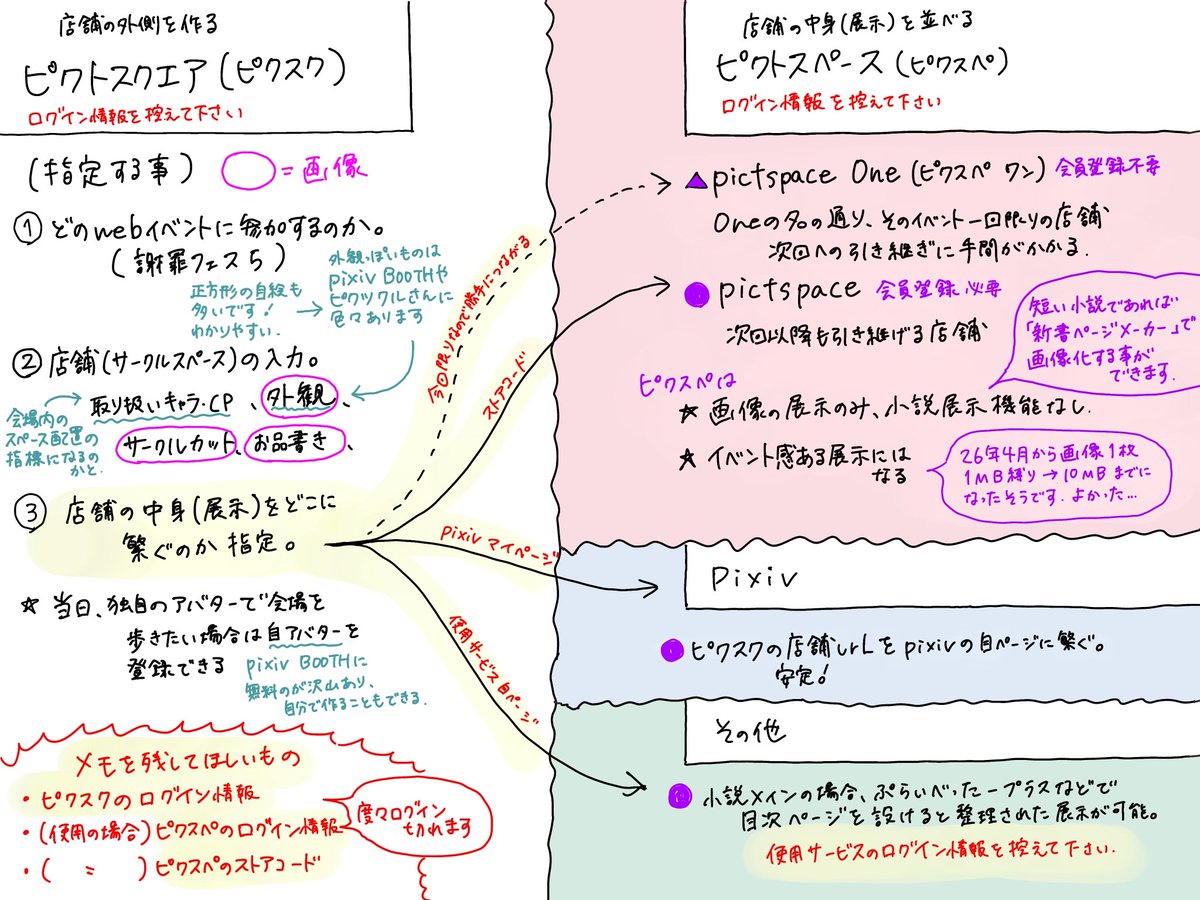 店舗の外側を作る
ピクトスクエア(ピクスク)
ログイン情報を控えて下さい
(指定する事) ○=画像
① どのwebイベントに参加するのか。
(謝罪フェス5)
正方形の自絵も
多いです!
わかりやすい.
外観っぽいものは
pixiv BOOTHや
ピクツクルさんに
色々あります
② 店舗(サークルスペース)の入力。
取り扱いキャラ・CP、外観、
サークルカット、お品書き、
会場内の
スペース配置の
指標になるの
かと.
③ 店舗の中身(展示)をどこに
繋ぐのか指定。
☆ 当日、独自のアバターで会場を
歩きたい場合は自アバターを
登録できる
pixiv BOOTHに
無料のが沢山あり、
自分で作ることもできる.
メモを残してほしいもの
・ピクスクのログイン情報
・(使用の場合)ピクスペのログイン情報
・( 〃 )ピクスペのストアコード
度々ログイン
も切れます
今回限りなので勝手につながる
ストアコード
pixivマイページ
使用サービス自ページ
店舗の中身(展示)を並べる
ピクトスペース(ピクスペ)
ログイン情報を控えて下さい
▲pictspace One(ピクスペ ワン) 会員登録不要
Oneの名の通り、そのイベント一回限りの店舗
次回への引き継ぎに手間がかかる.
●pictspace 会員登録必要
次回以降も引き継げる店舗
短い小説であれば
「新書ページメーカー」で
画像化する事が
できます.
ピクスペは
☆ 画像の展示のみ、小説展示機能なし.
☆ イベント感ある展示には
なる
26年4月から画像1枚
1MB縛り→10MBまでに
なったそうです.よかった…
Pixiv
●ピクスクの店舗urLをpixivの自ページに繋ぐ。
安定!
その他
●小説メインの場合、ぷらいべったープラスなどで
目次ページを設けると整理された展示が可能。
使用サービスのログイン情報を控えて下さい.